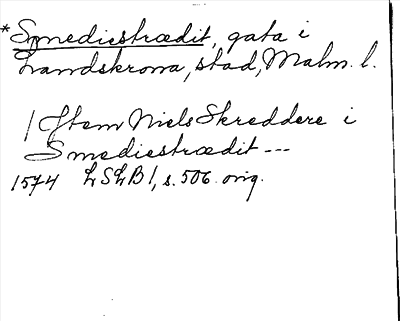 *Smediestrædit, gata i
Landskrona, stad, Malm. l.
/ Item Niels Skreddere i
Smediestrædit ---
1574 LSLB 1, s. 506. orig.